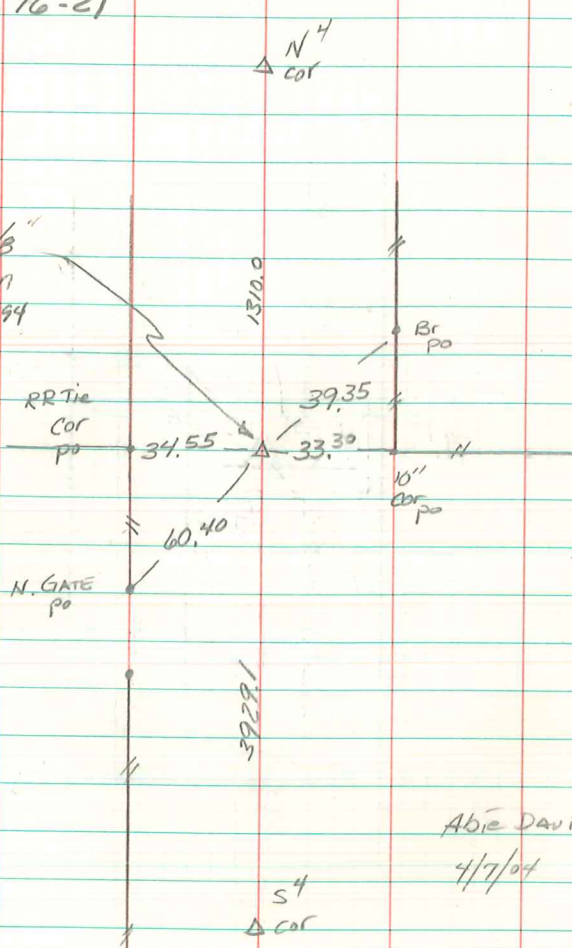 16-21
N 4
cor
1310.0
Br
po
39.35
RR Tie
Cor
po
34.55
33.30
10"
Cor
po
60.40
N. GATE
po
3929.1
Abie
4/7/04
S 4
cor